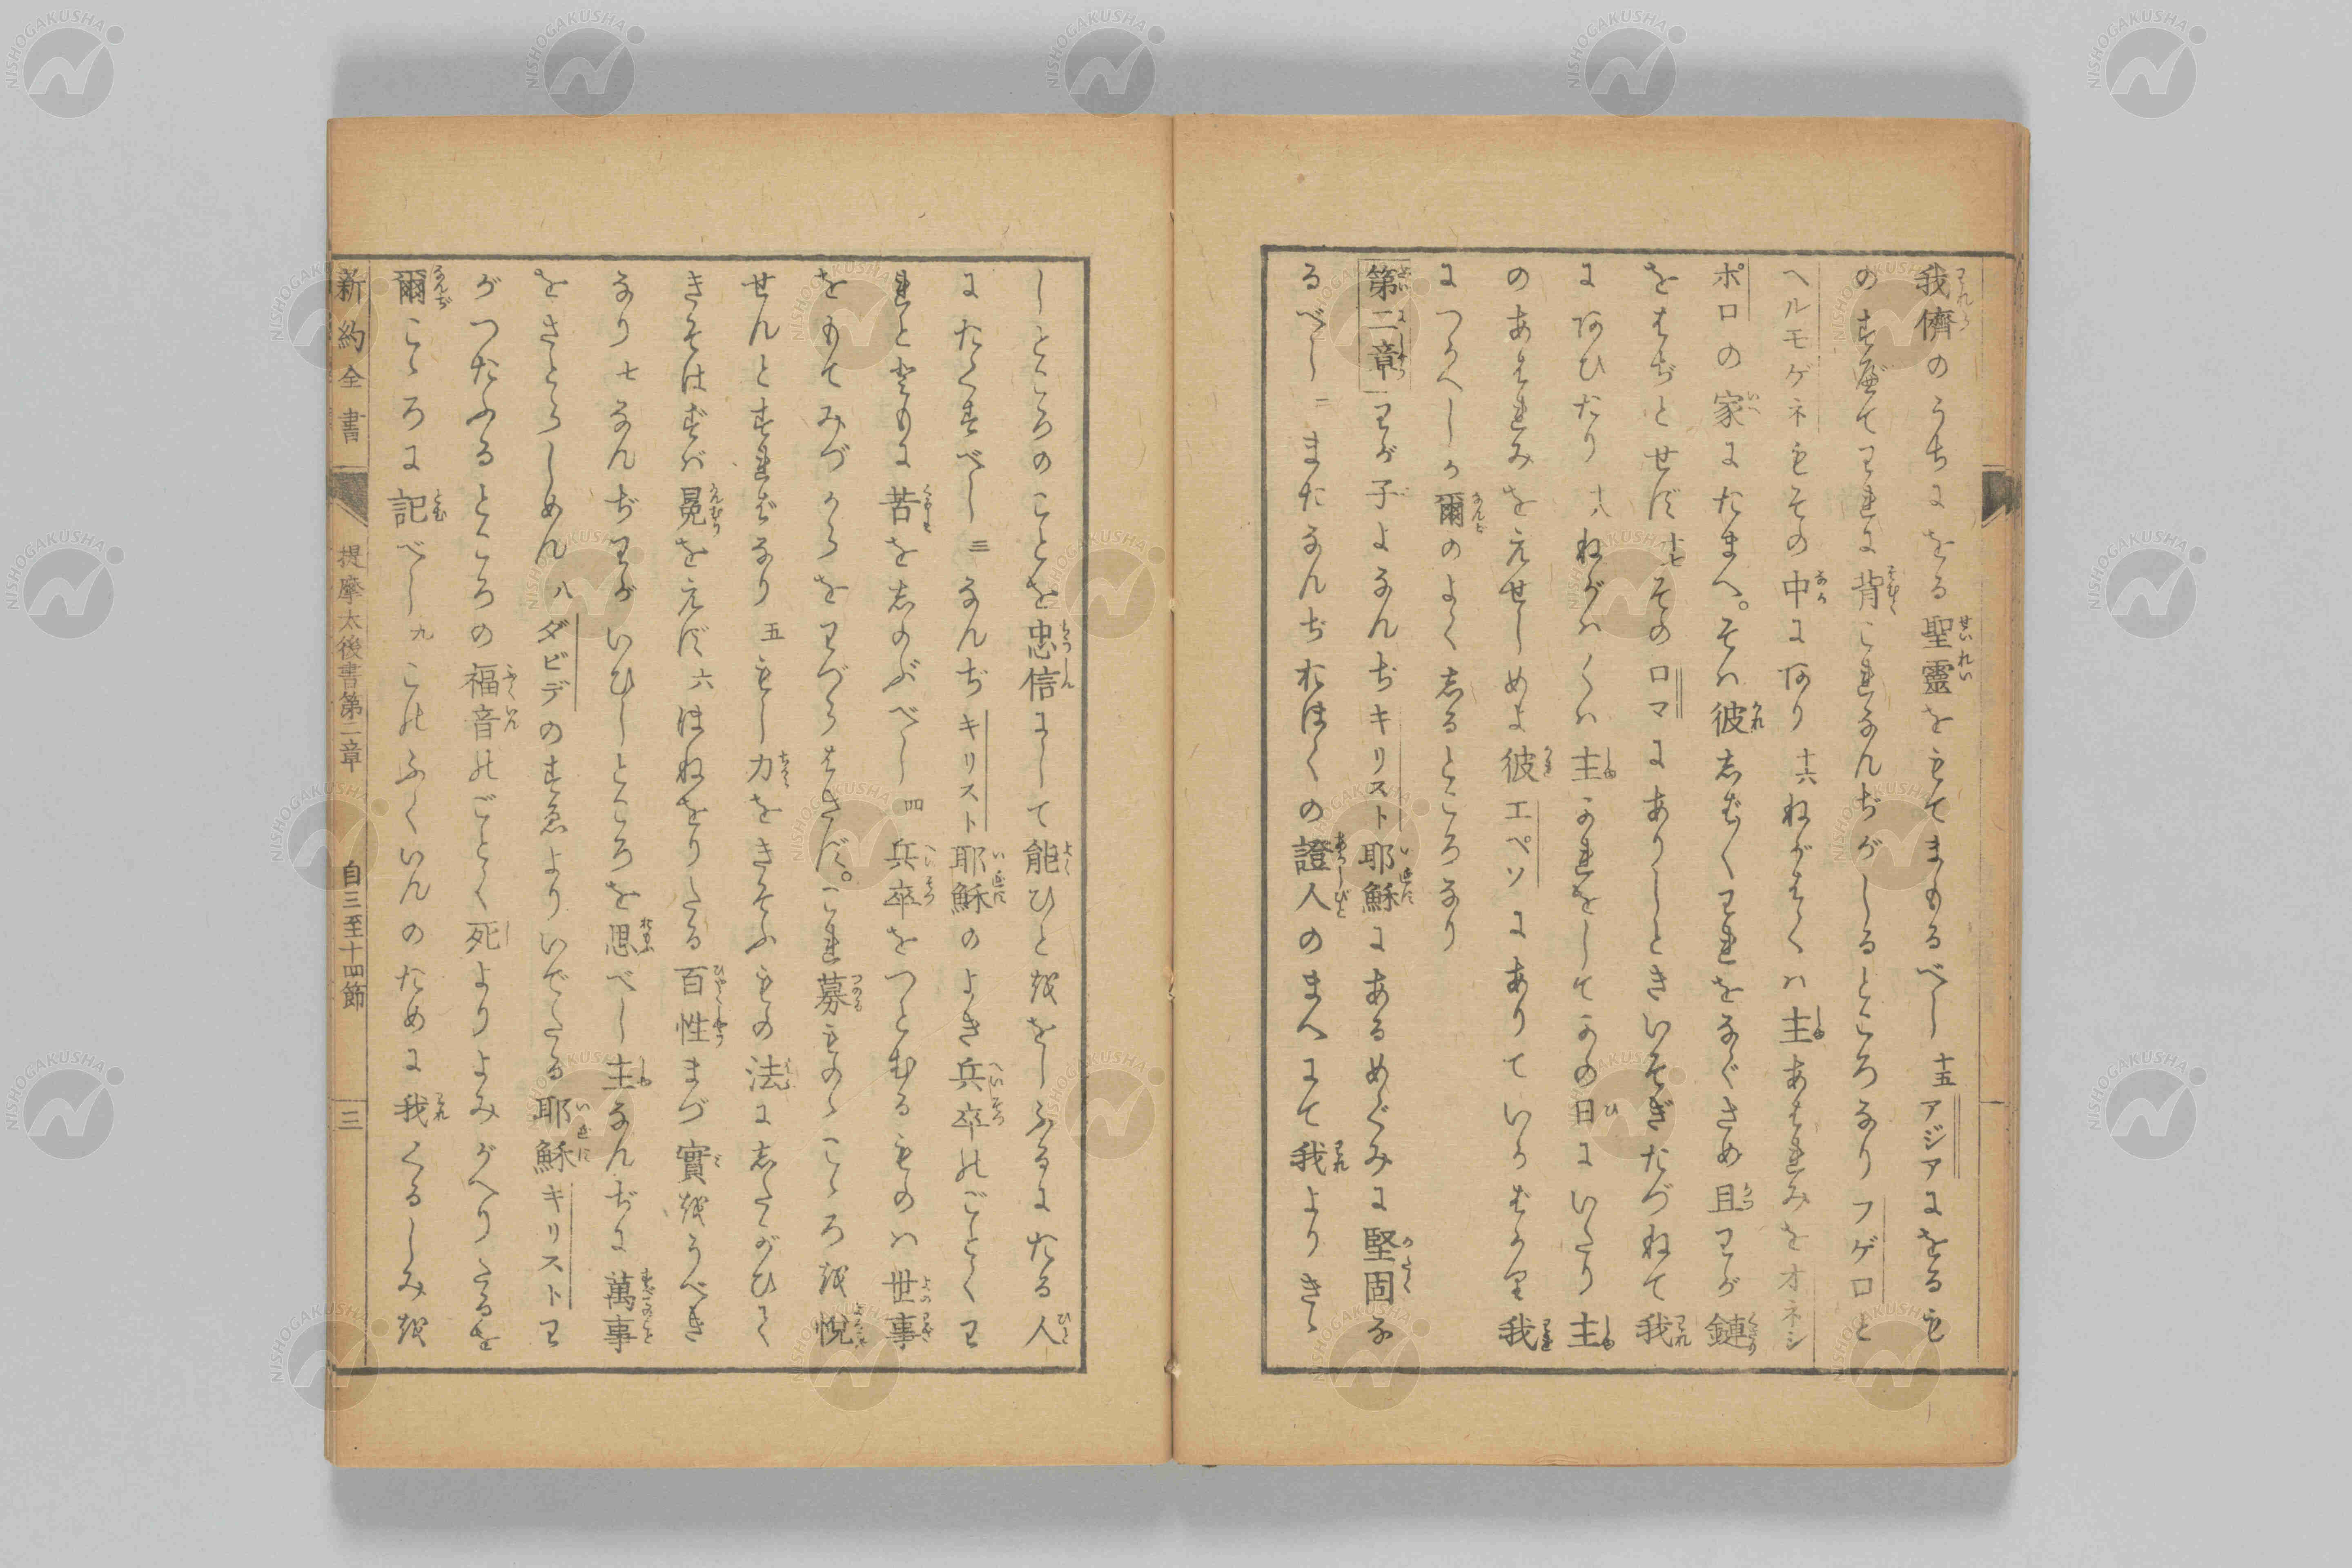 我儕のうちにをる聖靈をもてまもるべし 十五 アジアにをるも
のすべてわれに背これなんぢがしるところなりフゲロと
ヘルモゲネもその中にあり 十六 ねがはくハ主あはれみをオネシ
ポロの家にたまへ。そハ彼しばしばわれをなぐさめ且わが鏈
をはぢとせず 十七 そのロマにありしときいそぎたづねて我
にあひたり 十八 ねがハくハ主かれをしてかの日にいたり主
のあはれみをえせしめよ彼エペソにありていかばかり我
につかへしか爾のよくしるところなり
第二章 一 わが子よなんぢキリスト耶穌にあるめぐみに堅固な
るべし 二 またなんぢおほくの證人のまへにて我よりきゝ
しところのことを忠信にして能ひとををしふるにたる人
にたくすべし 三 なんぢキリスト耶穌のよき兵卒のごとくわ
れとともに苦をしのぶべし 四 兵卒をつとむるものハ世事
をもてみづからをわづらはさず。これ募ものゝこゝろを悅
せんとすればなり 五 もし力をきそふもの法にしたがひて
きそはずバ冕をえず 六 ほねをりたる百性まづ實をうべき
なり 七 なんぢわがいひしところを思べし主なんぢに萬事
をさとらしめん 八 ダビデのすゑよりいでたる耶穌キリストわ
がつたふるところの福音のごとく死よりよみがへりたるを
爾こゝろに記べし 九 このふくいんのために我くるしみを
新約全書 提摩太後書第二章 自三至十四節 三
NISHOGAKUSHA